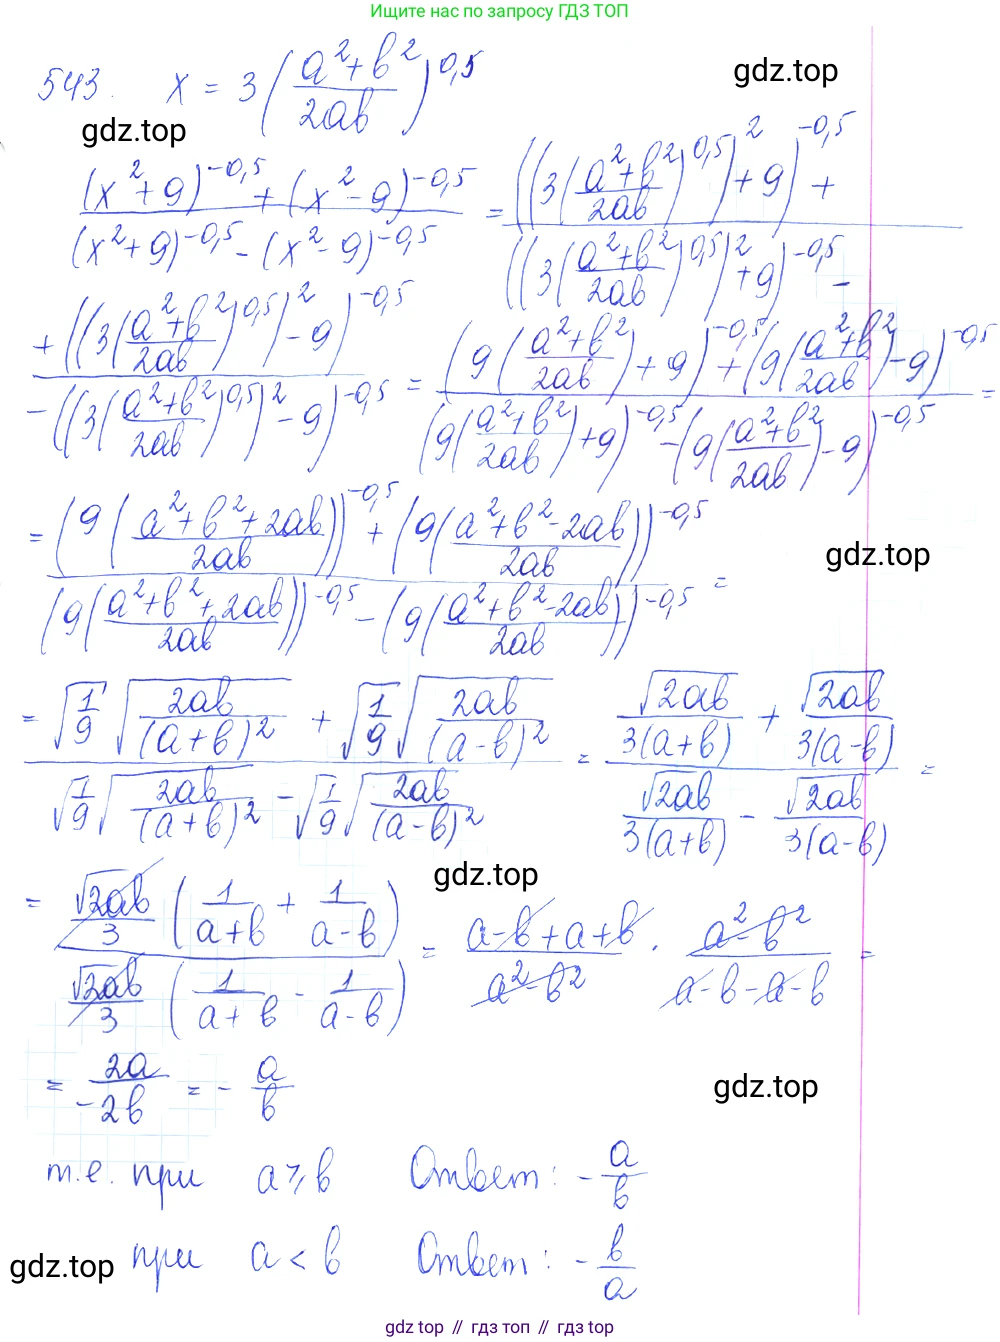 Ищите нас по запросу ГДЗ ТОП
543. x = 3 ((a²+b²)/(2ab))^0,5
gdz.top
gdz.top
((x²+9)^-0,5 + (x²-9)^-0,5)/((x²+9)^-0,5 - (x²-9)^-0,5) = (((3((a²+b²)/(2ab))^0,5)²+9)^-0,5 +)/(((3((a²+b²)/(2ab))^0,5)²+9)^-0,5 -)
(+ ((3((a²+b²)/(2ab))^0,5)²-9)^-0,5)/(- ((3((a²+b²)/(2ab))^0,5)²-9)^-0,5) = ((9((a²+b²)/(2ab))+9)^-0,5 + (9((a²+b²)/(2ab))-9)^-0,5)/((9((a²+b²)/(2ab))+9)^-0,5 - (9((a²+b²)/(2ab))-9)^-0,5) =
= ((9((a²+b²+2ab)/(2ab)))^-0,5 + (9((a²+b²-2ab)/(2ab)))^-0,5)/((9((a²+b²+2ab)/(2ab)))^-0,5 - (9((a²+b²-2ab)/(2ab)))^-0,5) =
gdz.top
= (√(1/9) √(2ab/(a+b)²) + √(1/9) √(2ab/(a-b)²))/(√(1/9) √(2ab/(a+b)²) - √(1/9) √(2ab/(a-b)²)) = (√2ab/(3(a+b)) + √2ab/(3(a-b)))/(√2ab/(3(a+b)) - √2ab/(3(a-b))) =
gdz.top
= (√2ab/3 (1/(a+b) + 1/(a-b)))/(√2ab/3 (1/(a+b) - 1/(a-b))) = (a-b+a+b)/(a²-b²) · (a²-b²)/(a-b-a-b) =
= 2a/(-2b) = - a/b
gdz.top
т.е. при a ⩾ b Ответ: - a/b
при a < b Ответ: - b/a
gdz.top
gdz.top // гдз топ // гдз top